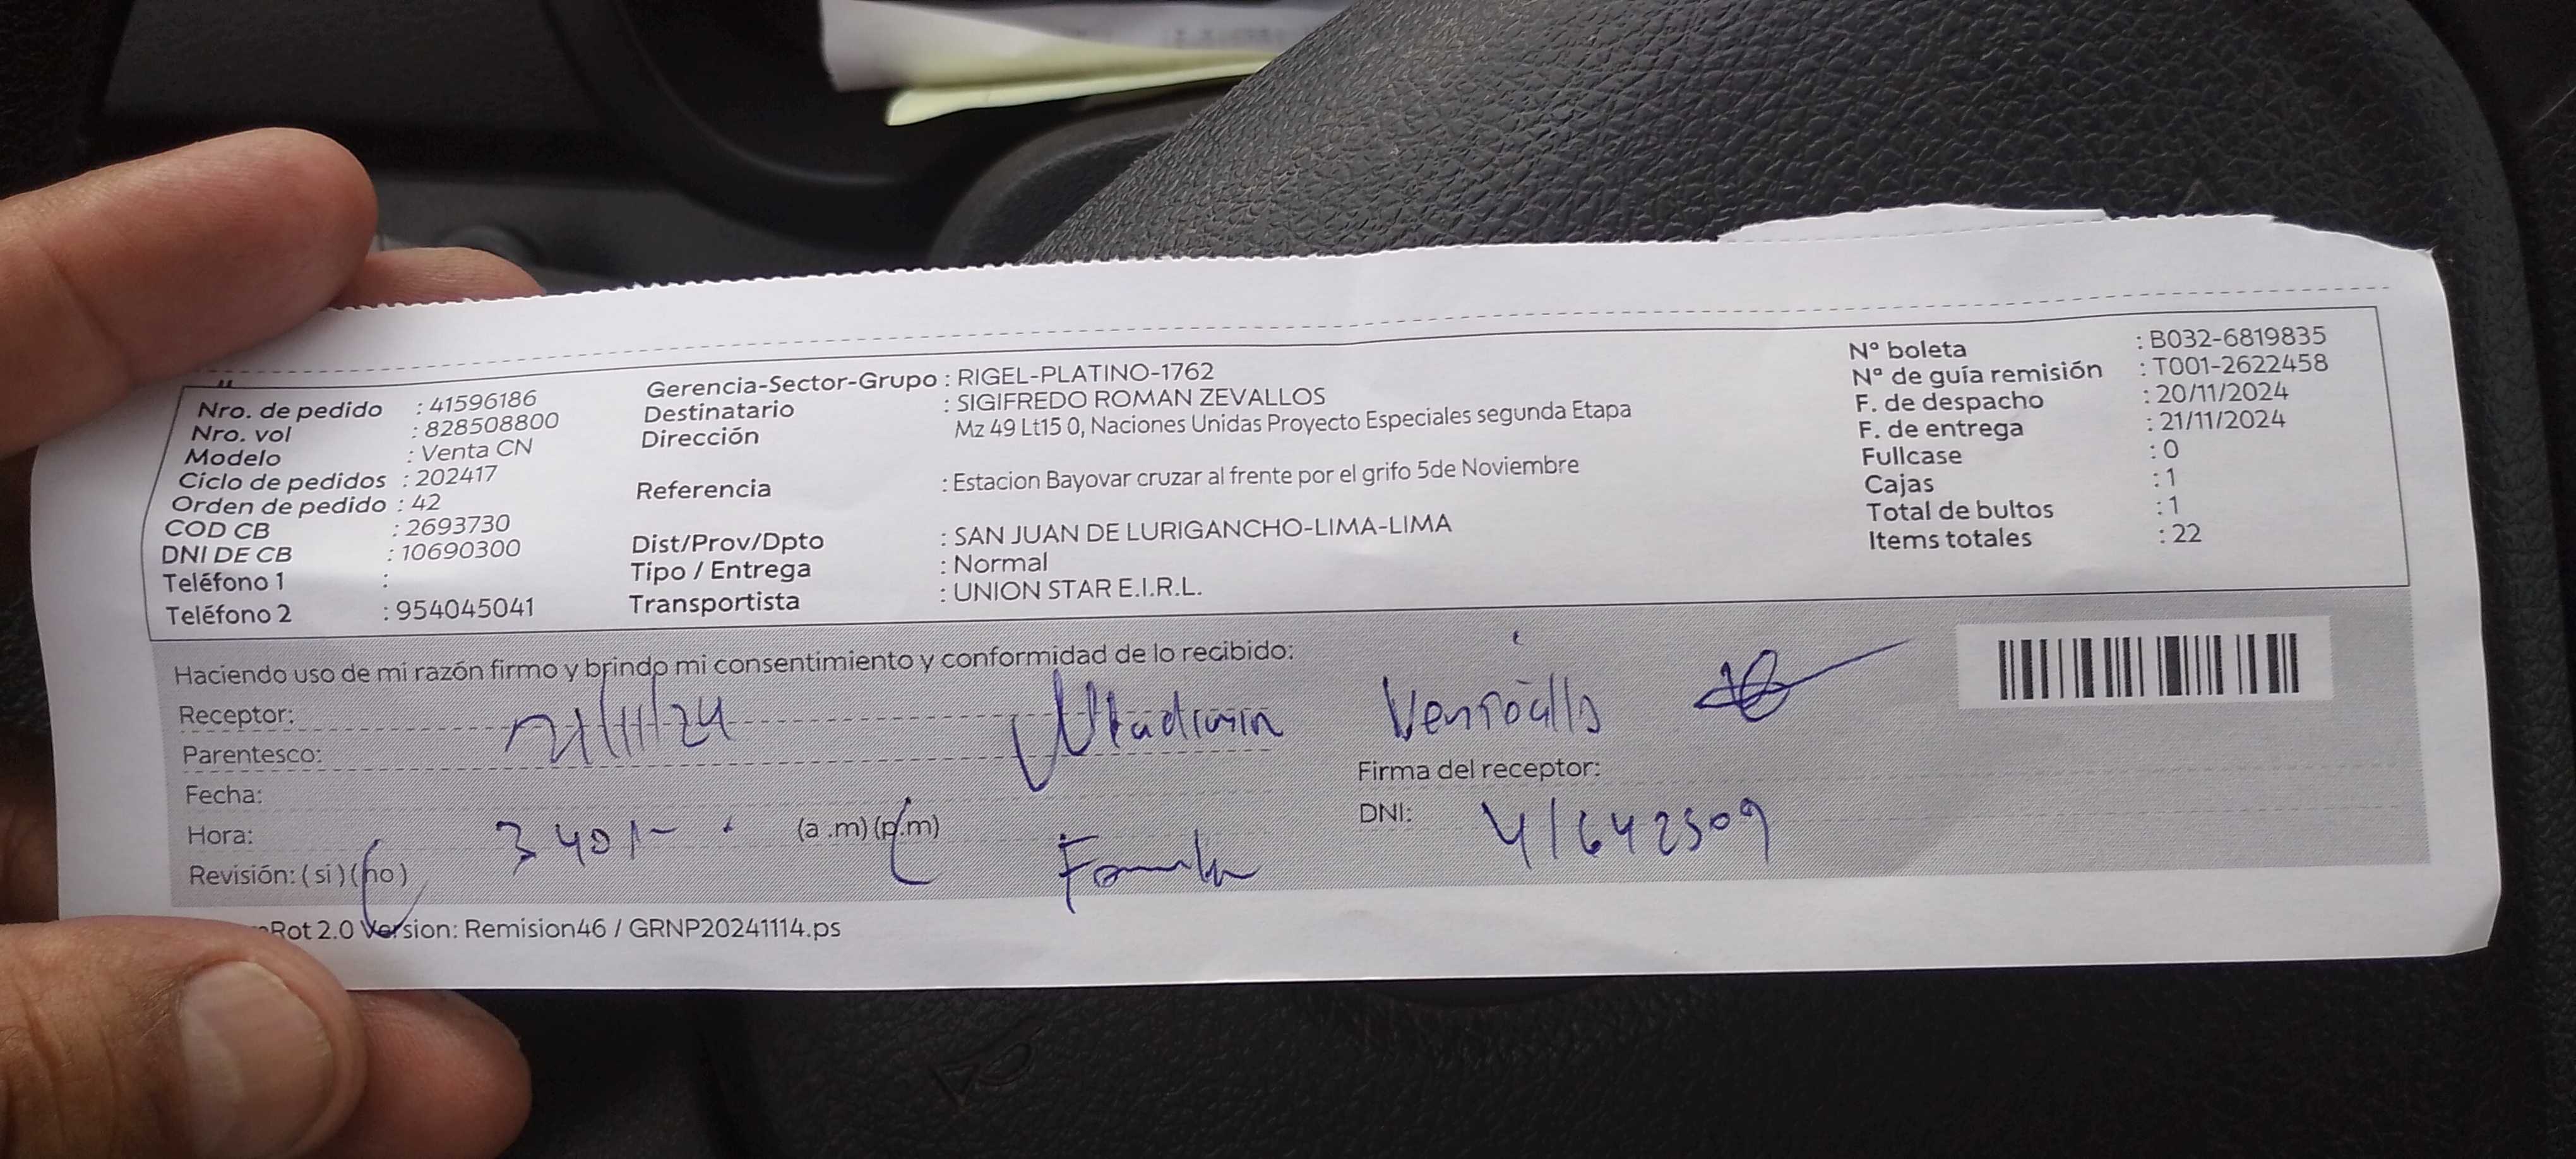 Nro. de pedido : 41596186
Nro. vol : 828508800
Modelo : Venta CN
Ciclo de pedidos : 202417
Orden de pedido : 42
COD CB : 2693730
DNI DE CB : 10690300
Teléfono 1 :
Teléfono 2 : 954045041
Gerencia-Sector-Grupo : RIGEL-PLATINO-1762
Destinatario : SIGIFREDO ROMAN ZEVALLOS
Dirección Mz 49 Lt15 0, Naciones Unidas Proyecto Especiales segunda Etapa
Referencia : Estacion Bayovar cruzar al frente por el grifo 5de Noviembre
Dist/Prov/Dpto : SAN JUAN DE LURIGANCHO-LIMA-LIMA
Tipo / Entrega : Normal
Transportista : UNION STAR E.I.R.L.
Nº boleta : B032-6819835
Nº de guía remisión : T001-2622458
F. de despacho : 20/11/2024
F. de entrega : 21/11/2024
Fullcase : 0
Cajas : 1
Total de bultos : 1
Items totales : 22
Haciendo uso de mi razón firmo y brindo mi consentimiento y conformidad de lo recibido:
Receptor: 21/11/24
Parentesco:
Fecha:
Hora: 3 40 (a .m) (p.m)
Revisión: ( si ) ( no )
Firma del receptor:
DNI: 41642509
Rot 2.0 Version: Remision46 / GRNP20241114.ps